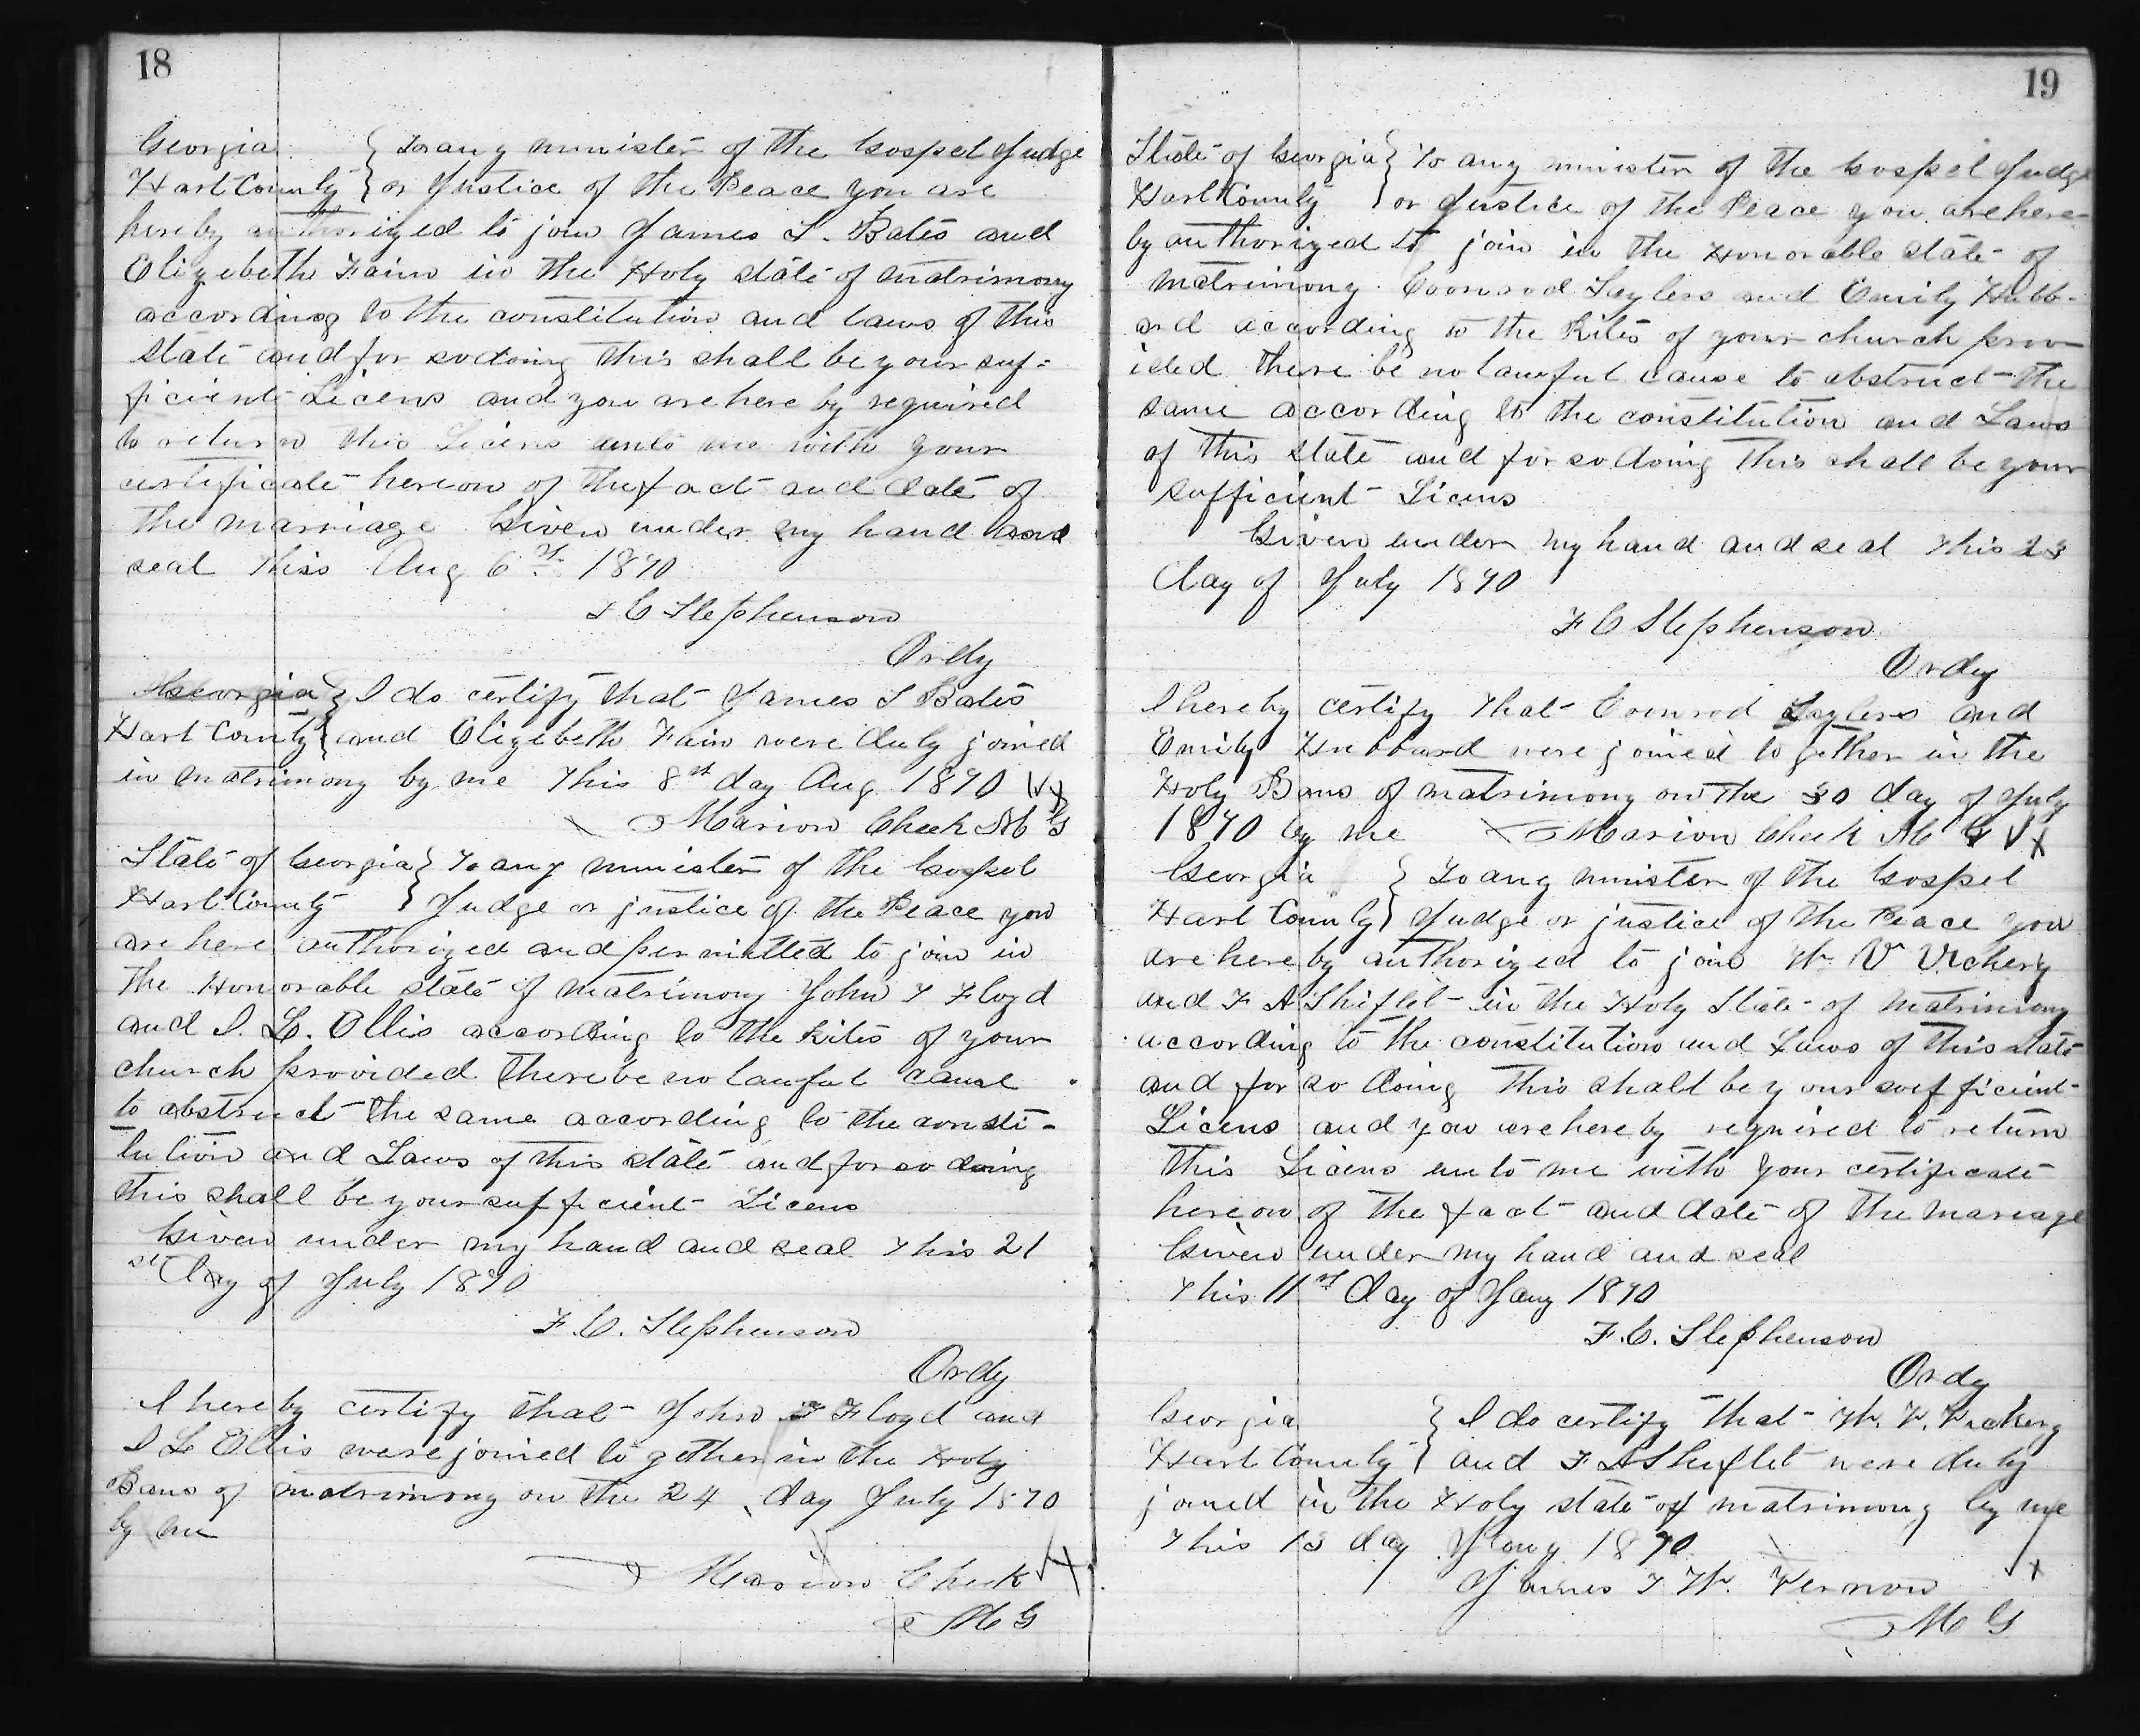 18
Georgia } To any minister of the Gospel Judge
Hart County } or Justice of the Peace you are
hereby authorized to join James S. Bates and
Elizebeth Fain in the Holy state of matrimony
according to the constitution and laws of this
state and for so doing this shall be your suf=
ficient Licens and you are here by required
to return this Licens unto me with your
certificate hereon of the fact and date of
the marriage Given under my hand and
seal this Aug 6st 1870
F C Stephenson
Ordy
Georgia } I do certify that James S Bates
Hart County } and Elizebeth Fain were duly joined
in matrimony by me this 8st day Aug 1870
Marion Cheek M G
State of Georgia } To any minister of the Gospel
Hart County } Judge or justice of the Peace you
are here authorized and permitted to join in
the Honorable state of matrimony John T Floyd
and S. L. Ollis according to the Rites of your
church provided there be no lawful cause
to abstruct the same according to the consti-
tution and Laws of this state and for so doing
this shall be your sufficient Licens
Given under my hand and seal this 21
st Day of July 1870
F. C. Stephenson
Ordy
I hereby certify that John T Floyd and
S L Ollis were joined together in the Holy
Bans of matrimony on the 24 day July 1870
by me
Marion Cheek
M G
19
State of Georgia } To any minister of the Gospel Judge
Hart County } or Justice of the Peace you are here-
by authorized to join in the Honorable state of
matrimony Coonrod Saylers and Emily Hubb-
ard according to the Rites of your church prov
ided there be no lawful cause to abstruct the
same according to the constitution and Laws
of this state and for so doing this shall be your
sufficient Licens
Given under my hand and seal this 23
day of July 1870
F C Stephenson
Ordy
I hereby certify that Coonrod Saylers and
Emily Hubbard were joined together in the
Holy Bans of matrimony on the 30 day of July
1870 by me Marion Cheek M G
Georgia } To any minister of the Gospel
Hart County } Judge or justice of the Peace you
are hereby authorized to join W V Vickery
and F A Shiflet in the Holy State of matrimony
according to the constitution and Laws of this state
and for so doing this shall be your sufficient
Licens and you are hereby required to return
this Licens unto me with your certificate
hereon of the fact and date of the Mariage
Given under my hand and seal
this 11st day of Jany 1870
F. C. Stephenson
Ordy
Georgia } I do certify that W. V. Vickery
Hart County } and F A Shiflet were duly
joined in the Holy state of matrimony by me
this 13 day Jany 1870
James T W. Vernon
M G